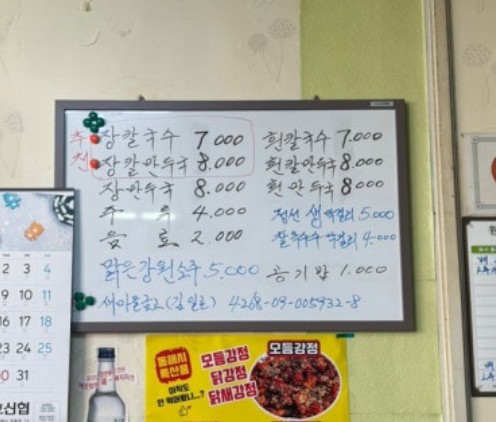 추천
장칼국수 7.000
장칼만두국 8.000
장만두국 8.000
주류 4.000
음료 2.000
맑은강원소주 5.000
흰칼국수 7.000
흰칼만두국 8.000
흰만두국 8000
정선 생막걸리 5.000
찰옥수수 막걸리 4.000
공기밥 1.000
새마을금고(김일로) 4268-09-005932-8
2 3 4
9 10 11
16 17 18
23 24 25
30 31
신협
동해시
특산품
아직도
안 먹어봤니...?
모듬강정
닭강정
닭새강정
모듬강정